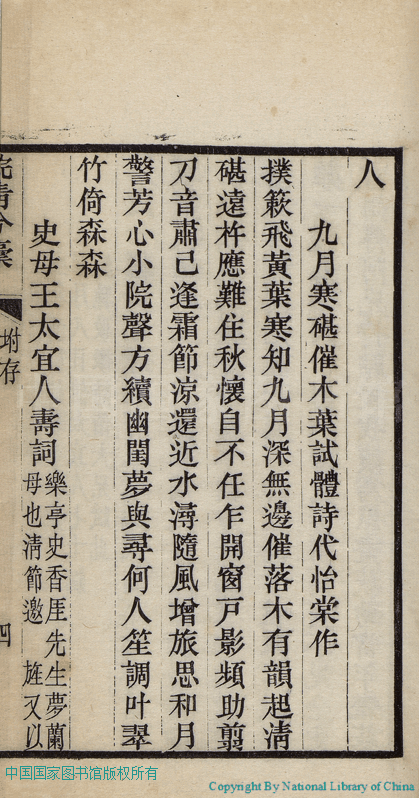 人
九月寒碪催木葉試體詩代怡棠作
撲簌飛黃葉寒知九月深無邊催落木有韻起清
碪遠杵應難住秋懷自不任乍開窗戶影頻助翦
刀音肅己逢霜節涼還近水潯隨風增旅思和月
警芳心小院聲方續幽閨夢與尋何人笙調叶翠
竹倚森森
史母王太宜人壽詞
樂亭史香厓先生夢蘭
母也清節邀 旌又以
坿存
四
中国国家图书馆版权所有
Copyright By National Library of China